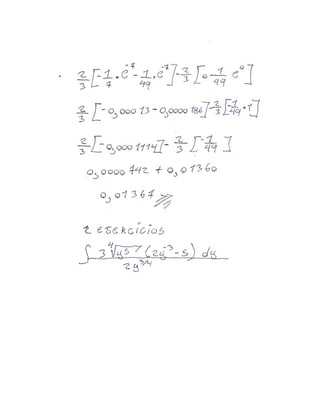 2/3 [-1/7 · e^-7 - 1/49 · e^-7] - 2/3 [0 - 1/49 e^0]
2/3 [-0,00013 - 0,0000186] - 2/3 [-1/49 · 1]
2/3 [-0,0001114] - 2/3 [-1/49]
0,0000742 + 0,01360
0,01367
2 EJERCICIOS
∫ 3 ∜y^5 (2y^-3 - 5) dy / 2y^3/4